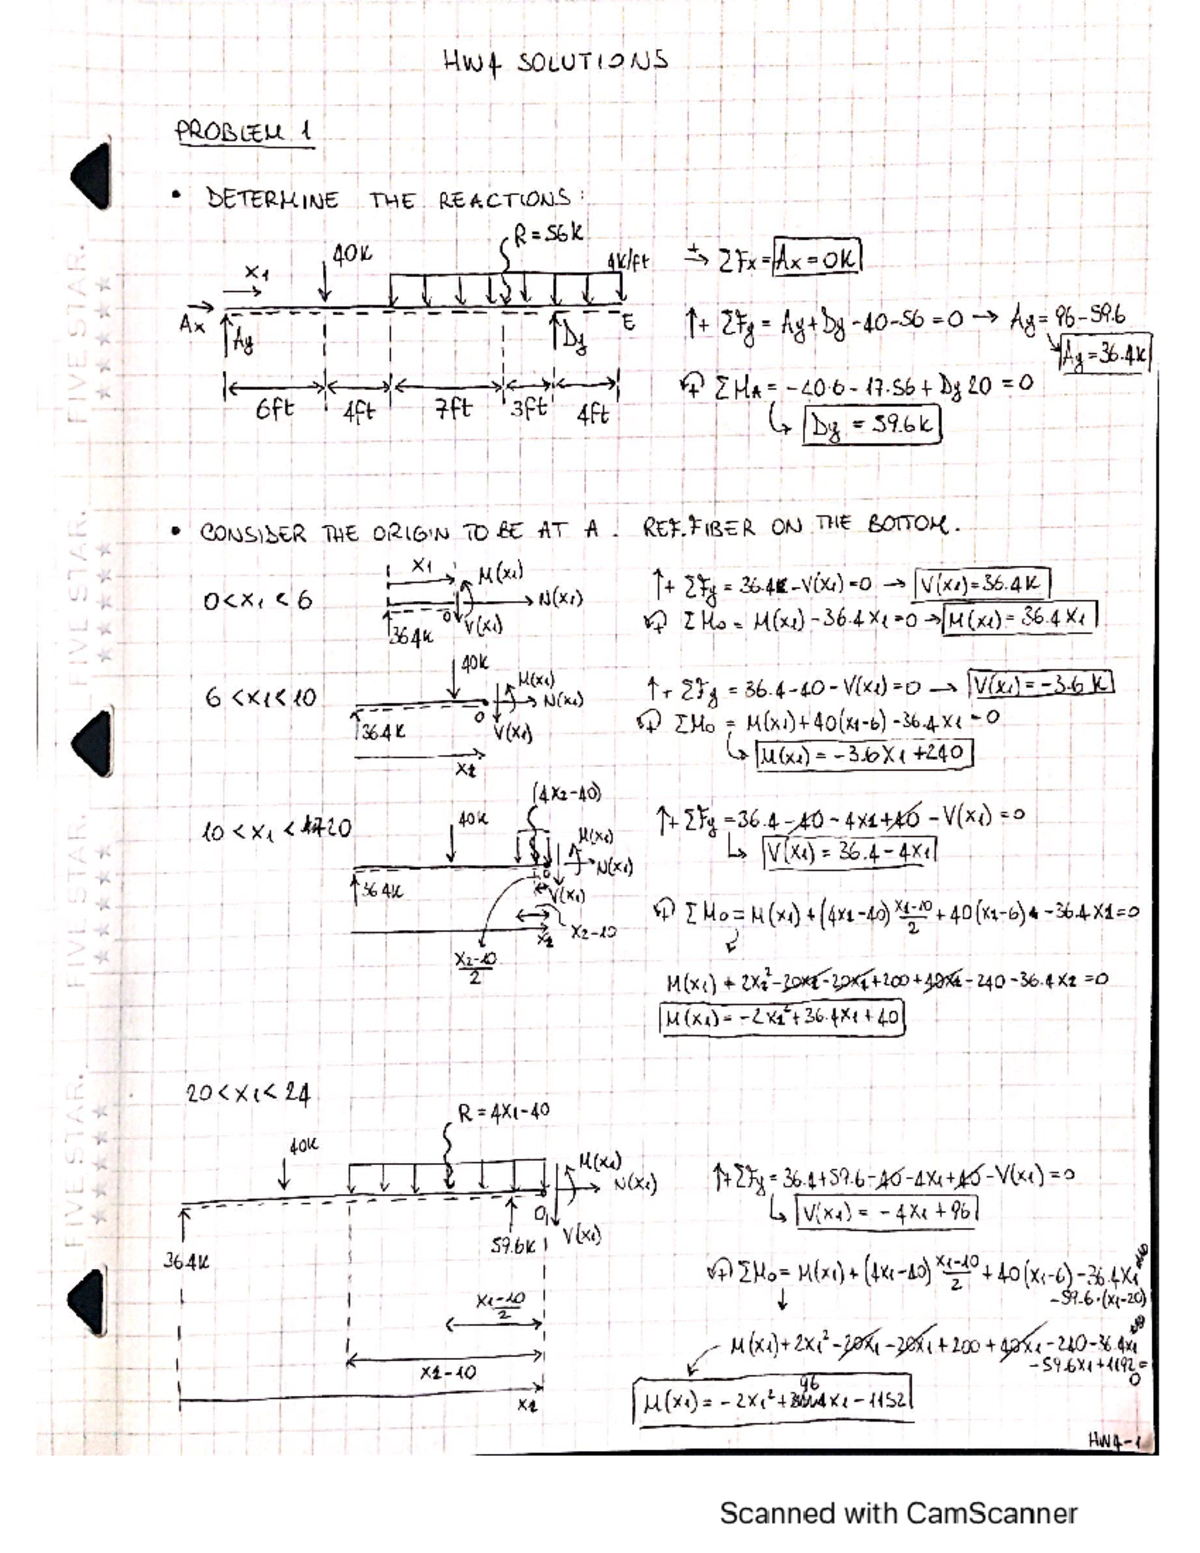 HW4 SOLUTIONS
PROBLEM 1
• DETERMINE THE REACTIONS:
R = 56K
40K
4K/ft
X1
Ax
Ay
Dy
E
6ft 4ft 7ft 3ft 4ft
→+ ΣFx = Ax = 0K
↑+ ΣFy = Ay + Dy - 40 - 56 = 0 → Ay = 96 - 59.6
Ay = 36.4K
ΣMA = -40·6 - 17·56 + Dy 20 = 0
Dy = 59.6K
• CONSIDER THE ORIGIN TO BE AT A. REF. FIBER ON THE BOTTOM.
0 < X1 < 6
X1
M(X1)
N(X1)
O
V(X1)
36.4K
↑+ ΣFy = 36.4K - V(X1) = 0 → V(X1) = 36.4K
ΣMo = M(X1) - 36.4X1 = 0 → M(X1) = 36.4X1
6 < X1 < 10
40K
M(X1)
N(X1)
O
V(X1)
36.4K
X1
↑+ ΣFy = 36.4 - 40 - V(X1) = 0 → V(X1) = -3.6K
ΣMo = M(X1) + 40(X1-6) - 36.4X1 = 0
M(X1) = -3.6X1 +240
10 < X1 < 20
(4X1-40)
40K
M(X1)
N(X1)
V(X1)
36.4K
X1-10
X1
X1-10
2
↑+ ΣFy = 36.4 - 40 - 4X1 + 40 - V(X1) = 0
V(X1) = 36.4 - 4X1
ΣMo = M(X1) + (4X1-40) X1-10/2 + 40(X1-6) - 36.4X1 = 0
M(X1) + 2X1² - 20X1 - 20X1 + 200 + 40X1 - 240 - 36.4X1 = 0
M(X1) = -2X1² + 36.4X1 + 40
20 < X1 < 24
R = 4X1-40
40K
M(X1)
N(X1)
O
V(X1)
36.4K
59.6K
X1-10
2
X1-10
X1
↑+ ΣFy = 36.4 + 59.6 - 40 - 4X1 + 40 - V(X1) = 0
V(X1) = -4X1 + 96
ΣMo = M(X1) + (4X1-40) X1-10/2 + 40(X1-6) - 36.4X1
-59.6·(X1-20)
M(X1) + 2X1² - 20X1 - 20X1 + 200 + 40X1 - 240 - 36.4X1
-59.6X1 + 1192 = 0
M(X1) = -2X1² + 96X1 - 1152
HW4-1
FIVE STAR.
FIVE STAR.
FIVE STAR.
FIVE STAR.
Scanned with CamScanner